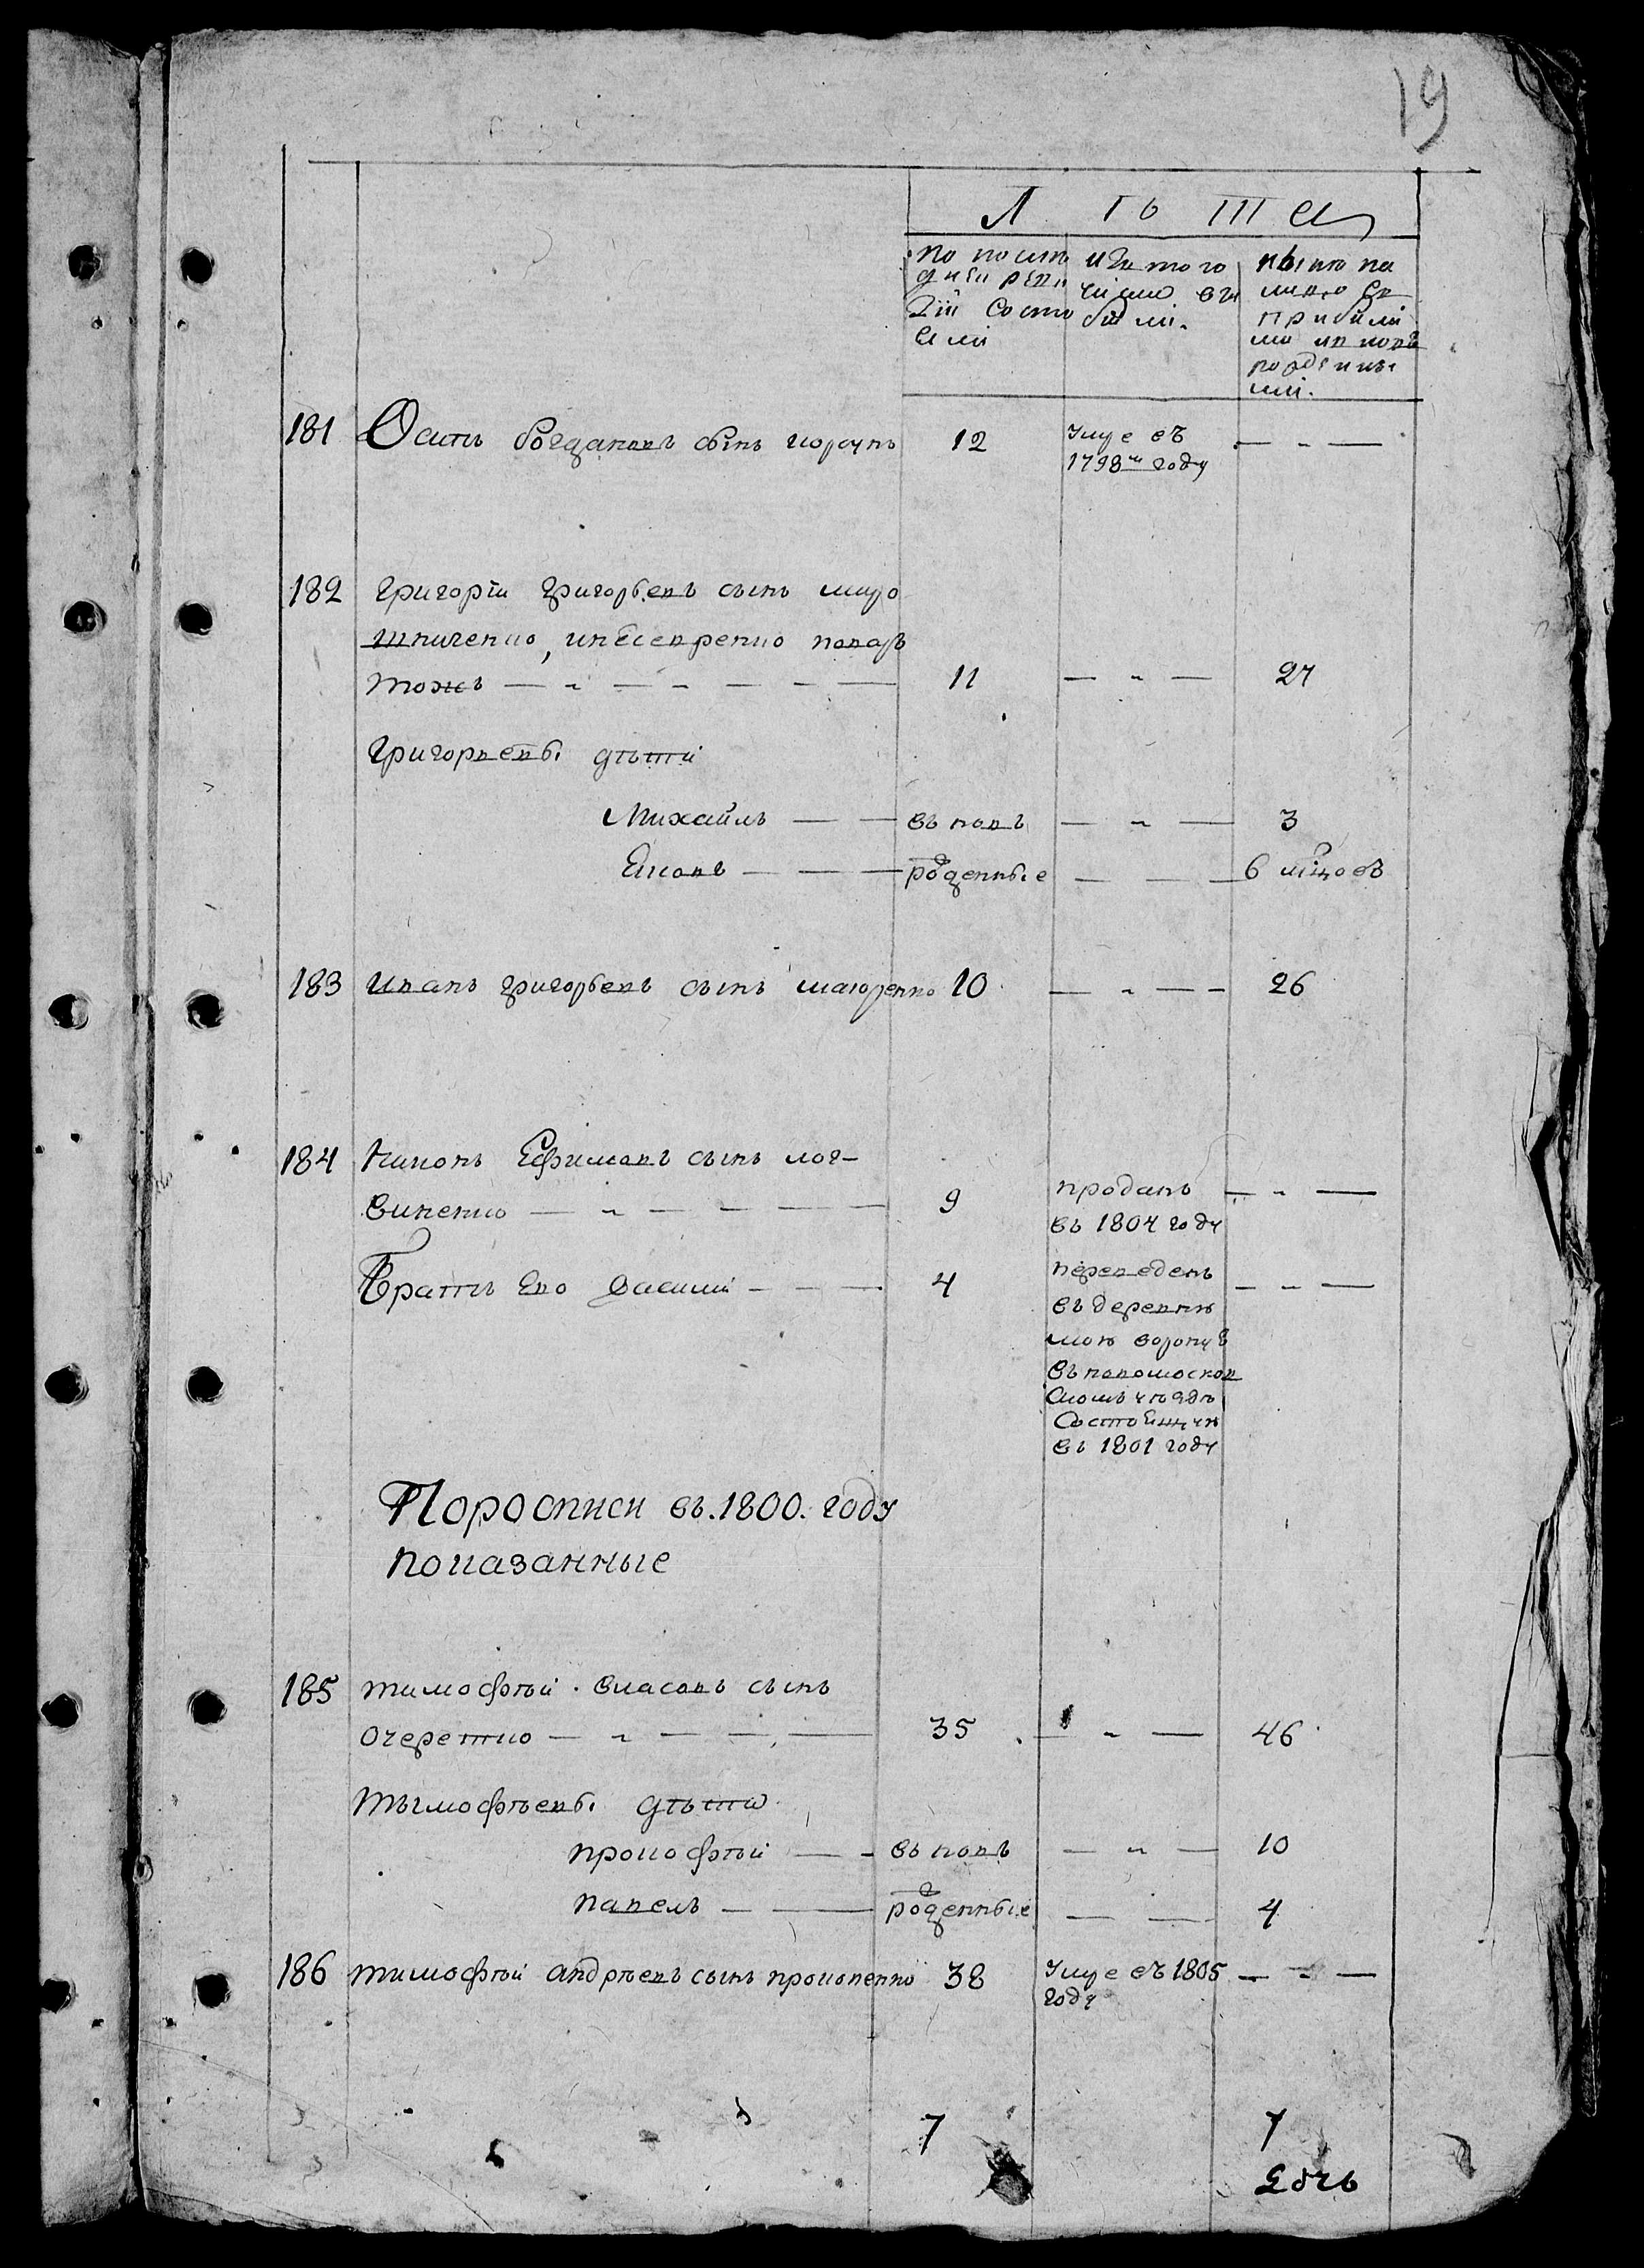 19
Л ѣ т а
по послѣ
дней реви
зіи состо
яли
изъ того
числа вы
были.
нынѣ на
лицо съ
прибылы
ми и новъ
рожденны
ми.
181 Осипъ богдановъ сынъ коржъ 12 умре въ
1798м году
182 Григорій григорьевъ сынъ миро
шниченко, инѣсевренко поваръ
тожъ 11 27
Григорьевы дѣти
Михайлъ въ новъ 3
Яковъ рожденные 6 мѣцовъ
183 Иванъ григорьевъ сынъ макаренко 10 26
184 Никонъ Ефимовъ сынъ лог-
виненко 9 проданъ
въ 1804 году
Братъ его Василій 4 переведенъ
въ деревню
мою воронув
въ новомосков
скомъ уѣздѣ
состоящую
въ 1801 году
По росписи въ. 1800. году
показанные
185 тимофѣй власовъ сынъ
очеретко 35 46
тымофѣевы дѣти
прокофѣй въ новъ 10
павелъ рожденные 4
186 тимофѣй андрѣевъ сынъ прокопенко 38 умре въ 1805
году
7 7